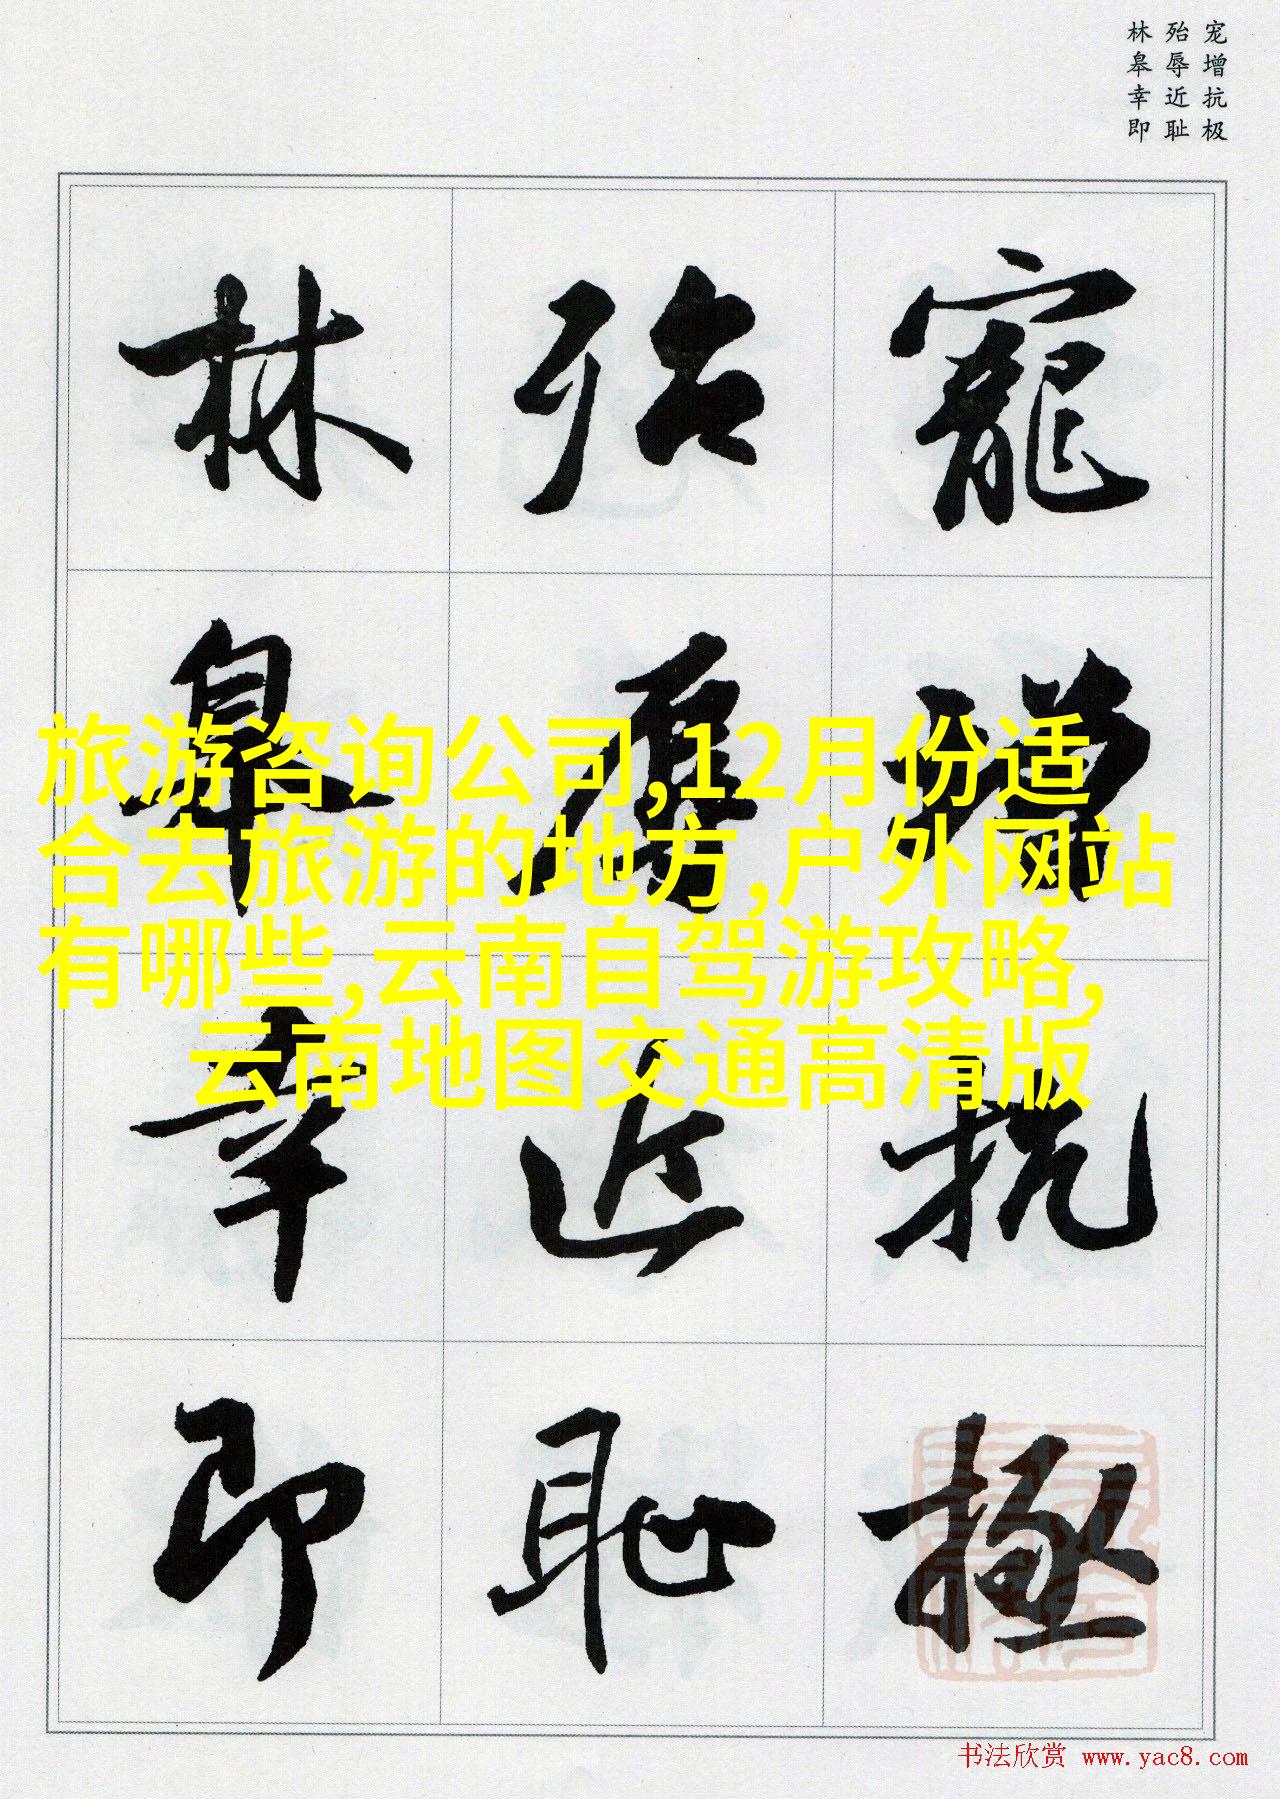 宠增抗极
殆辱近耻
林皋幸即
寵增抗極
殆辱近恥
林皋幸即
旅游咨询公司,12月份适
合去旅游的地方,户外网站
有哪些,云南自驾游攻略,
云南地图交通高清版
书法欣赏 www.yac8.com